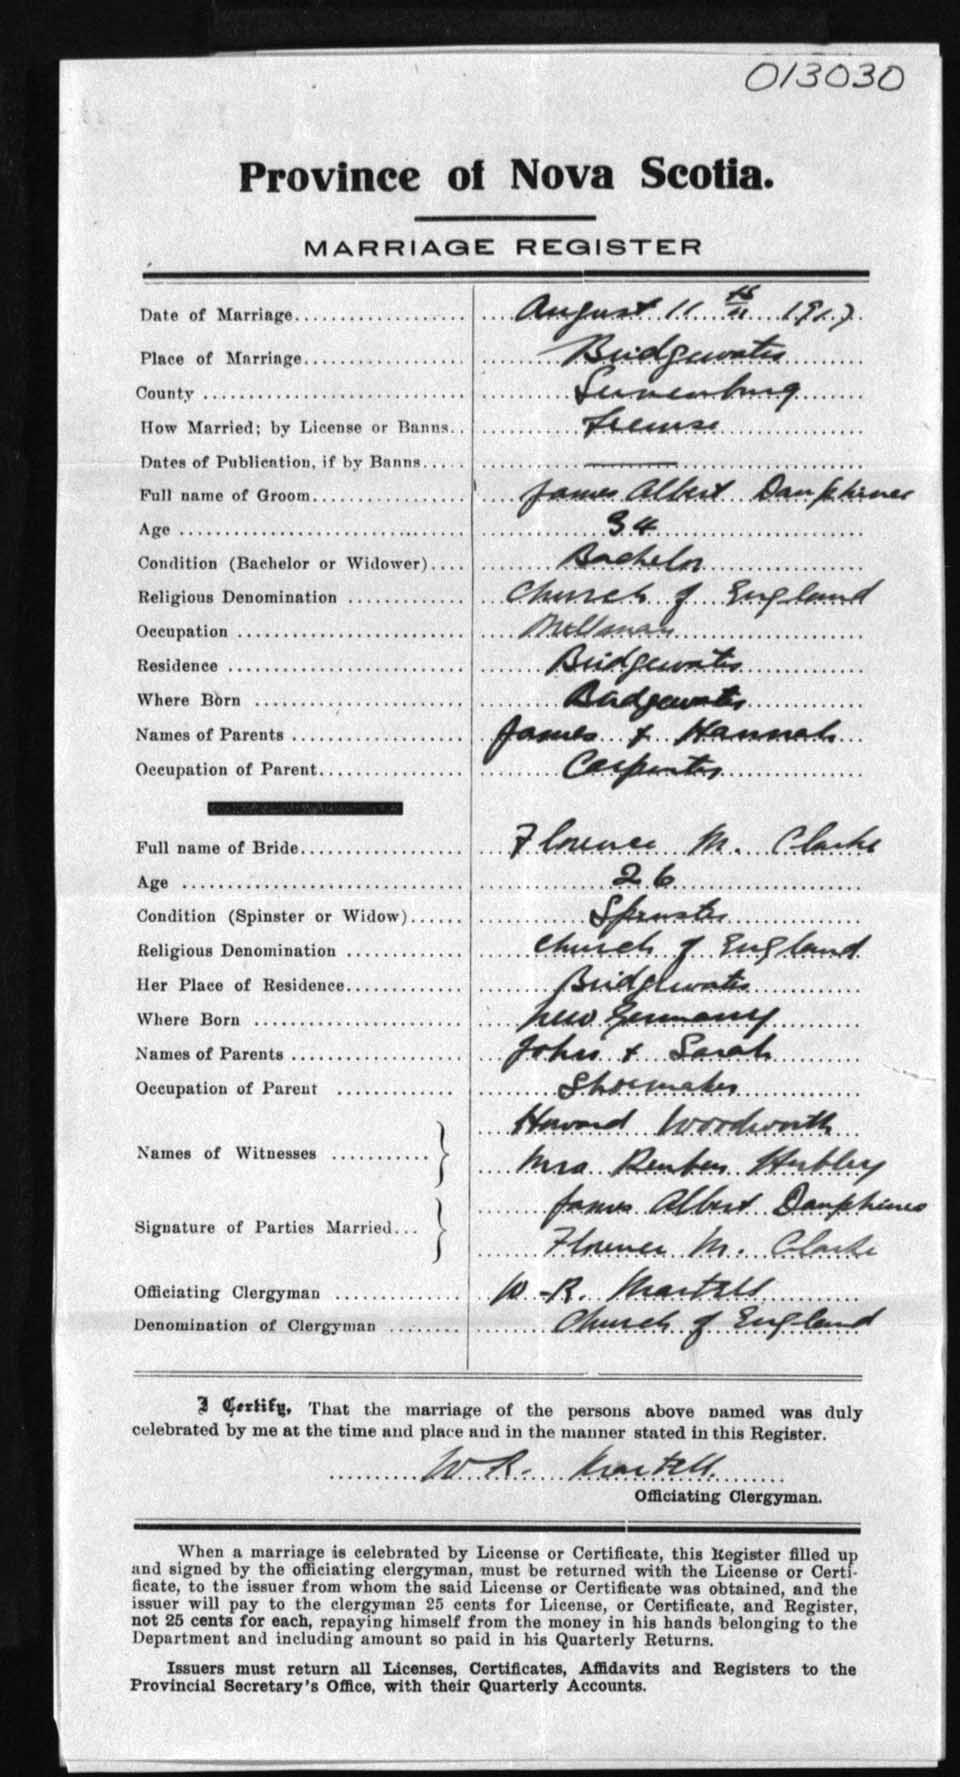 013030
Province of Nova Scotia.
MARRIAGE REGISTER
Date of Marriage.................... August 11 th 1917
Place of Marriage.................... Bridgewater
County .................... Lunenburg
How Married; by License or Banns.. License
Dates of Publication, if by Banns..... ———
Full name of Groom.................... James Albert Dauphinee
Age .................... 34
Condition (Bachelor or Widower).... Bachelor
Religious Denomination .................... Church of England
Occupation .................... Millman
Residence .................... Bridgewater
Where Born .................... Bridgewater
Names of Parents .................... James & Hannah
Occupation of Parent.................... Carpenter
Full name of Bride.................... Florence M. Clarke
Age .................... 26
Condition (Spinster or Widow)...... Spinster
Religious Denomination .................... Church of England
Her Place of Residence.................... Bridgewater
Where Born .................... New Germany
Names of Parents .................... John & Sarah
Occupation of Parent .................... Shoemaker
Names of Witnesses ........... } Howard Woodworth
Mrs Reuben Hubley
Signature of Parties Married... } James Albert Dauphinee
Florence M. Clarke
Officiating Clergyman .................... W. R. Martell
Denomination of Clergyman ........ Church of England
I Certify, That the marriage of the persons above named was duly
celebrated by me at the time and place and in the manner stated in this Register.
W R. Martell.
Officiating Clergyman.
When a marriage is celebrated by License or Certificate, this Register filled up
and signed by the officiating clergyman, must be returned with the License or Certi-
ficate, to the issuer from whom the said License or Certificate was obtained, and the
issuer will pay to the clergyman 25 cents for License, or Certificate, and Register,
not 25 cents for each, repaying himself from the money in his hands belonging to the
Department and including amount so paid in his Quarterly Returns.
Issuers must return all Licenses, Certificates, Affidavits and Registers to the
Provincial Secretary's Office, with their Quarterly Accounts.